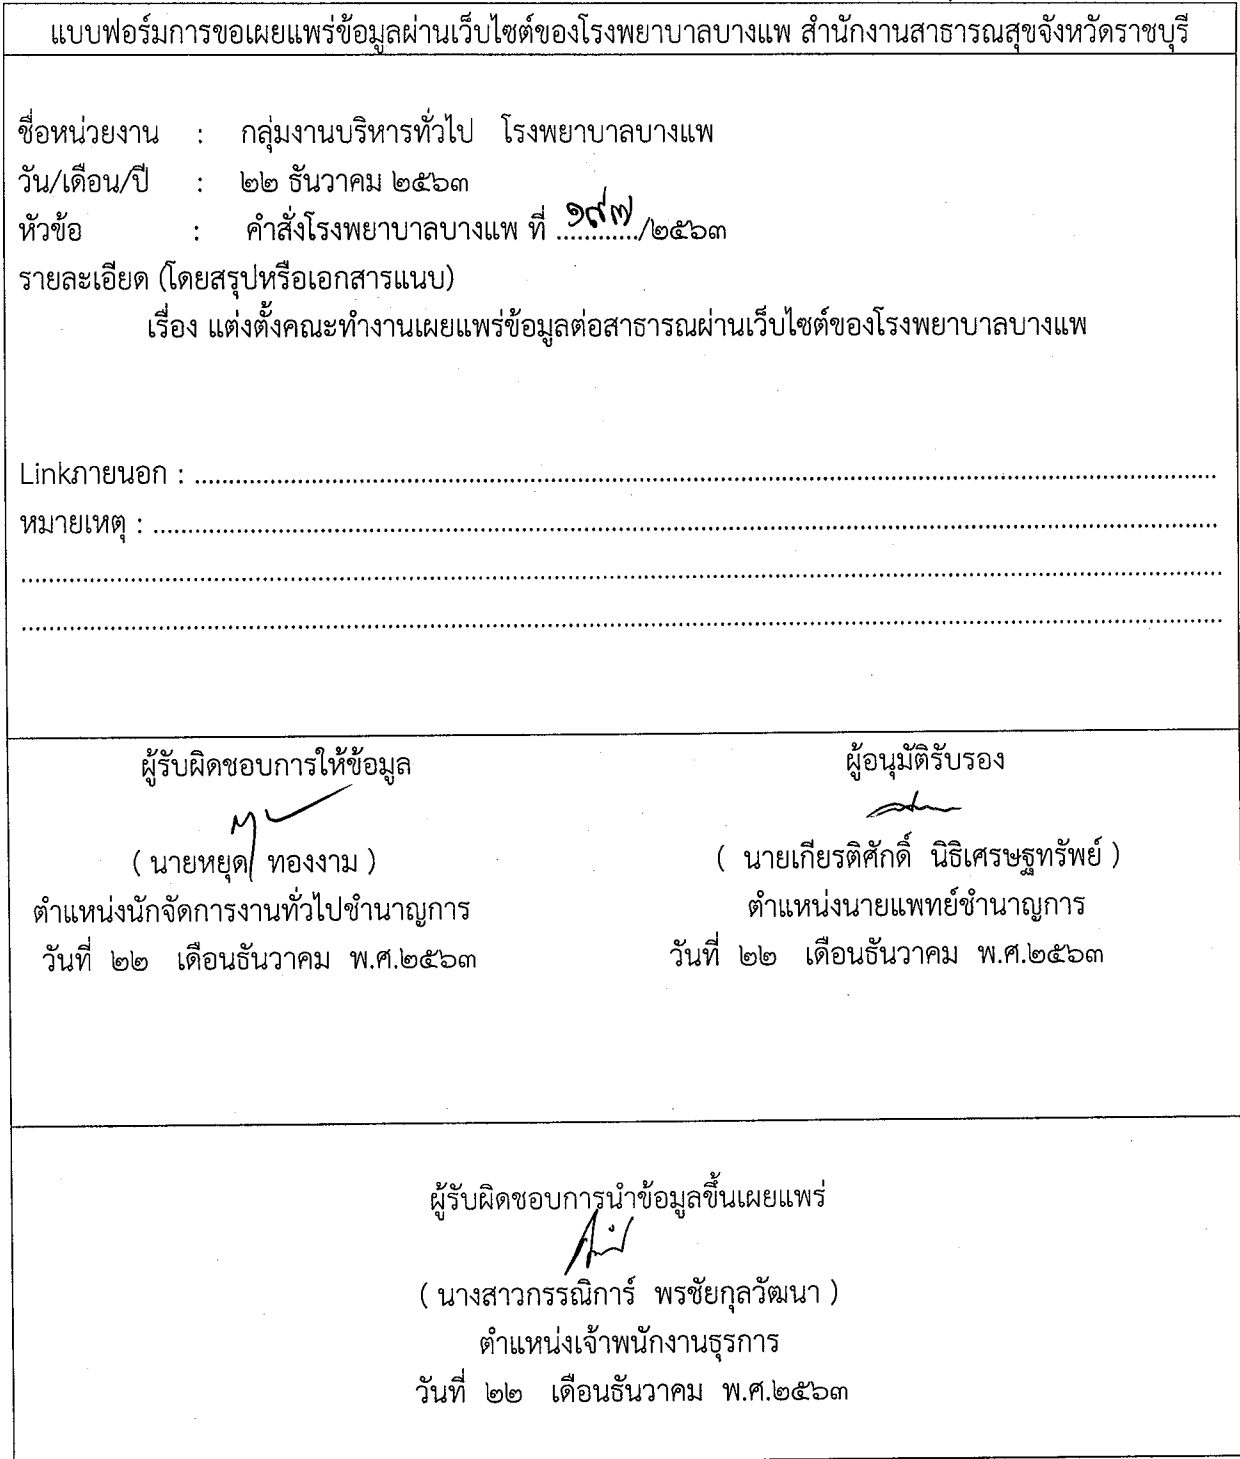 แบบฟอร์มการขอเผยแพร่ข้อมูลผ่านเว็บไซต์ของโรงพยาบาลบางแพ สำนักงานสาธารณสุขจังหวัดราชบุรี
ชื่อหน่วยงาน : กลุ่มงานบริหารทั่วไป โรงพยาบาลบางแพ
วัน/เดือน/ปี : ๒๒ ธันวาคม ๒๕๖๓
หัวข้อ : คำสั่งโรงพยาบาลบางแพ ที่ ๑๙๗/๒๕๖๓
รายละเอียด (โดยสรุปหรือเอกสารแนบ)
เรื่อง แต่งตั้งคณะทำงานเผยแพร่ข้อมูลต่อสาธารณผ่านเว็บไซต์ของโรงพยาบาลบางแพ
Linkภายนอก : ................................................................
หมายเหตุ : ................................................................
ผู้รับผิดชอบการให้ข้อมูล
( นายหยุด ทองงาม )
ตำแหน่งนักจัดการงานทั่วไปชำนาญการ
วันที่ ๒๒ เดือนธันวาคม พ.ศ.๒๕๖๓
ผู้อนุมัติรับรอง
( นายเกียรติศักดิ์ นิธิเศรษฐทรัพย์ )
ตำแหน่งนายแพทย์ชำนาญการ
วันที่ ๒๒ เดือนธันวาคม พ.ศ.๒๕๖๓
ผู้รับผิดชอบการนำข้อมูลขึ้นเผยแพร่
( นางสาวกรรณิการ์ พรชัยกุลวัฒนา )
ตำแหน่งเจ้าพนักงานธุรการ
วันที่ ๒๒ เดือนธันวาคม พ.ศ.๒๕๖๓